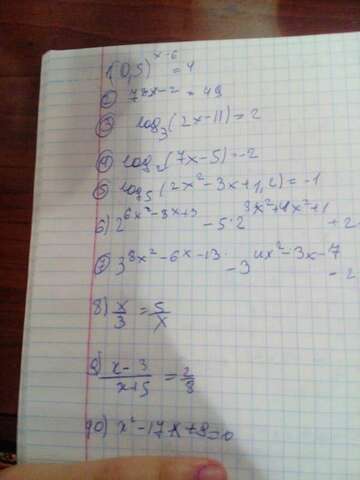 1(0,5)^{x-6} = 4
② 7^{8x-2} = 49
③ log_3(2x-11) = 2
④ log (7x-5) = -2
⑤ log_5(2x²-3x+1,2) = -1
6) 2^{6x²-8x+3} - 5·2^{3x²+4x²+1} + 2
⑦ 3^{8x²-6x-13} - 3^{4x²-3x-7} - 2
8) x/3 = 5/x
9) x-3/x+5 = 2/8
10) x²-17x+8=0